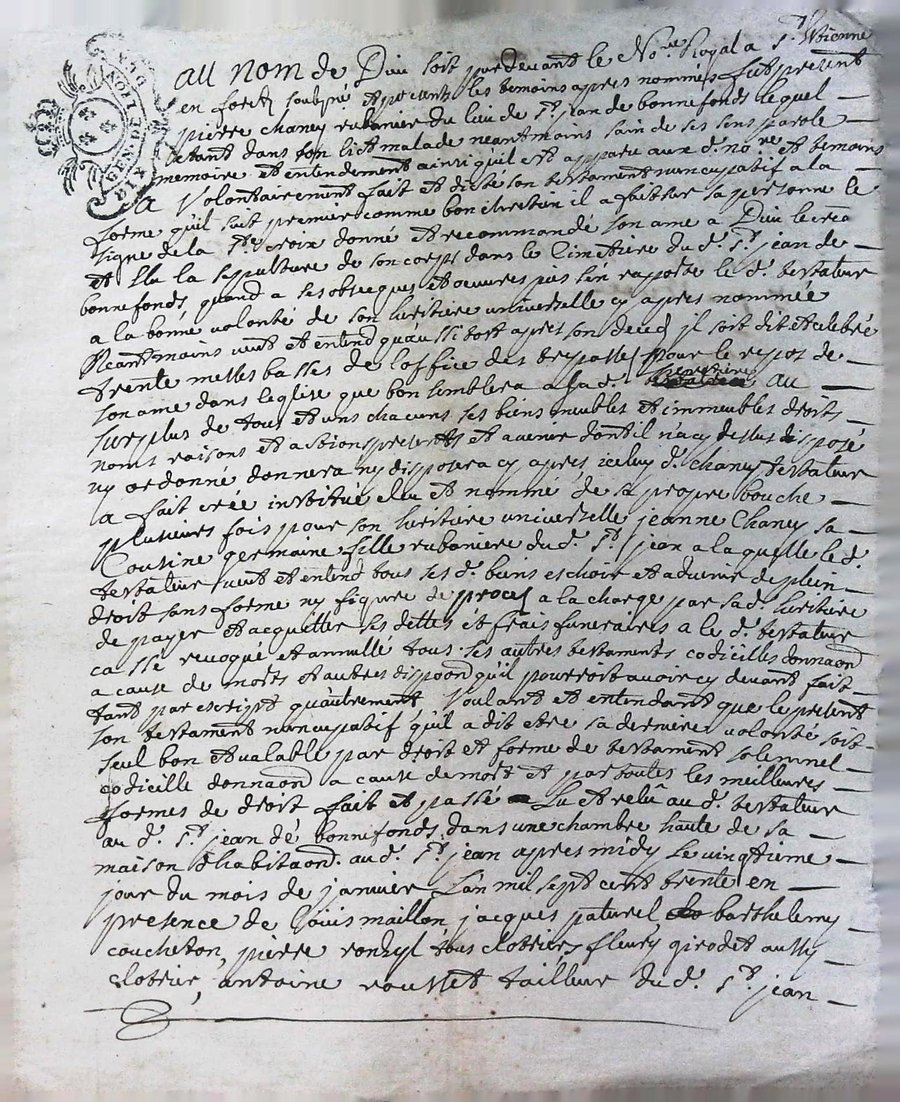 GEN. DE LION
DIX DEN
au nom de Dieu soit pardevant le No.re Royal a S.t Etienne
en forest soubsigné et present les temoins apres nommes fut present
pierre chaney rubanier du lieu de S.t jean de bonnefonds lequel
estant dans son lict malade neantmoins sain de ses sens parole
memoire et entendement ainsi quil est apparu aux d. no.re et temoins
a Volontairement fait et dicté son testament nuncupatif a la
forme qu'il suit premier comme bon chretien il a fait sur sa personne le
signe de la S.te croix donné et recommandé son ame a Dieu le créa
et Elu la sepulture de son corps dans le Cimetiere du d. S.t jean de
bonnefonds quand a ses obseques et oeuvres pies s'en rapporte le d. testateur
a la bonne volonté de son heritiere universelle cy apres nommée
Neantmoins veut et entend qu'aussitost apres son deces il soit dit et celebré
trente messes basses de l'office des trepassés pour le repos de
son ame dans l'eglise que bon semblera a sa d. heretiere au
surplus de tous et uns chacuns ses biens meubles et immeubles droits
noms raisons et actions presents et avenir dont il n'a cy dessus disposé
ny ordonné donnera ny disposera cy apres iceluy d. chaney testateur
a fait créé institué elu et nommé de sa propre bouche
plusieurs fois pour son heritiere universelle jeanne Chaney sa
Cousine germaine fille rubaniere du d. S.t jean a laquelle le d.
testateur veut et entend tous ses d. biens eschoir et advenir de plein
droit sans forme ny figure de procés a la charge par sa d. heritiere
de payer et acquitter ses dettes et frais funeraires a le d. testateur
cassé revoqué et annullé tous ses autres testaments codicilles donnaond
a cause de morts et autres dispoond qu'il pourroit avoir cy devant fait
tant par escript qu'autrement Voulant et entendant que le present
son testament nuncupatif qu'il a dit etre sa derniere volonté soit
seul bon et valable par droit et forme de testament solemnel
codicille donnaond a cause de mort et par toutes les meilleures
formes de droit fait et passé Lu et relû au d. testateur
au d. S.t jean de bonnefonds dans une chambre haute de sa
maison d'habitaond. au d. S.t jean apres midy le vingtieme
jour du mois de janvier L'an mil sept cent trente en
presence de Louis maillon, jacques paturel barthelemy
coucheton, pierre ronzyl tous clotriers fleury girodet aussy
clotrier, antoine rousset tailleur du d. S.t jean